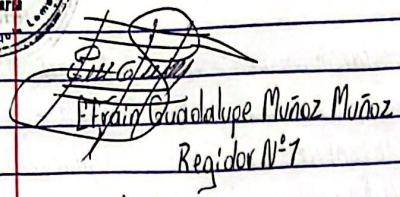 Efraín Guadalupe Muñoz Muñoz
Regidor Nº1